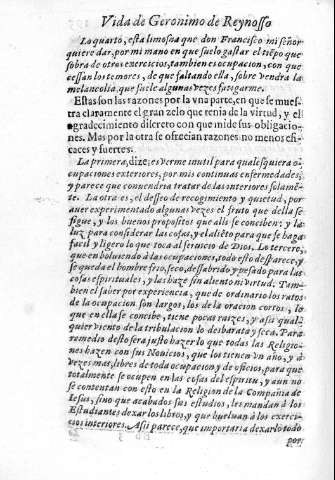 Vida de Geronimo de Reynosso
Lo quarto, esta limosna que don Francisco mi señor
quiere dar, por mi mano en que suelo gastar el tiẽpo que
sobra de otros exercicios, tambien es ocupacion, con que
cessan los temores, de que faltando ella, sobre vendra la
melancolia, que suele algunas vezes fatigarme.
Estas son las razones por la vna parte, en que se mues-
tra claramente el gran zelo que tenia de la virtud, y el
agradecimiento discreto con que mide sus obligacio-
nes. Mas por la otra se ofrecian razones no menos efi-
caces y fuertes.
La primera, dize, es verme inutil para qualesquiera o-
cupaciones exteriores, por mis continuas enfermedades,
y parece que conuendria tratar de las interiores solamẽ-
te. La otra es, el desseo de recogimiento y quietud, por
auer experimentado algunas vezes el fruto que della se
sigue, y los buenos propositos que alli se conciben; y la
luz para considerar las cosas, y el aliẽto para que se haga
facil y ligero lo que toca al seruicio de Dios. Lo tercero,
que en boluiendo à las ocupaciones, todo esto desparece, y
se queda el hombre frio, seco, dessabrido y pesado para las
cosas espirituales, y las haze sin aliento ni virtud. Tam-
bien el saber por experiencia, que de ordinario los ratos
de la ocupacion son largos, los de la oracion cortos, lo
que en ella se concibe, tiene pocas raizes, y assi qual-
quier viento de la tribulacion lo desbarata y seca. Para
remedio desto sera justo hazer lo que todas las Religio-
nes hazen con sus Nouicios, que los tienen vn año, y à
vezes mas, libres de toda ocupacion y de oficios, para que
totalmente se ocupen en las cosas del espiritu, y aun no
se contentan con esto en la Religion de la Compañia de
Iesus, sino que acabados sus estudios, les mandan à los
Estudiantes dexar los libros, y que bueluan à los exerci-
cios interiores. Assi parece, que importaria dexarlo todo
por